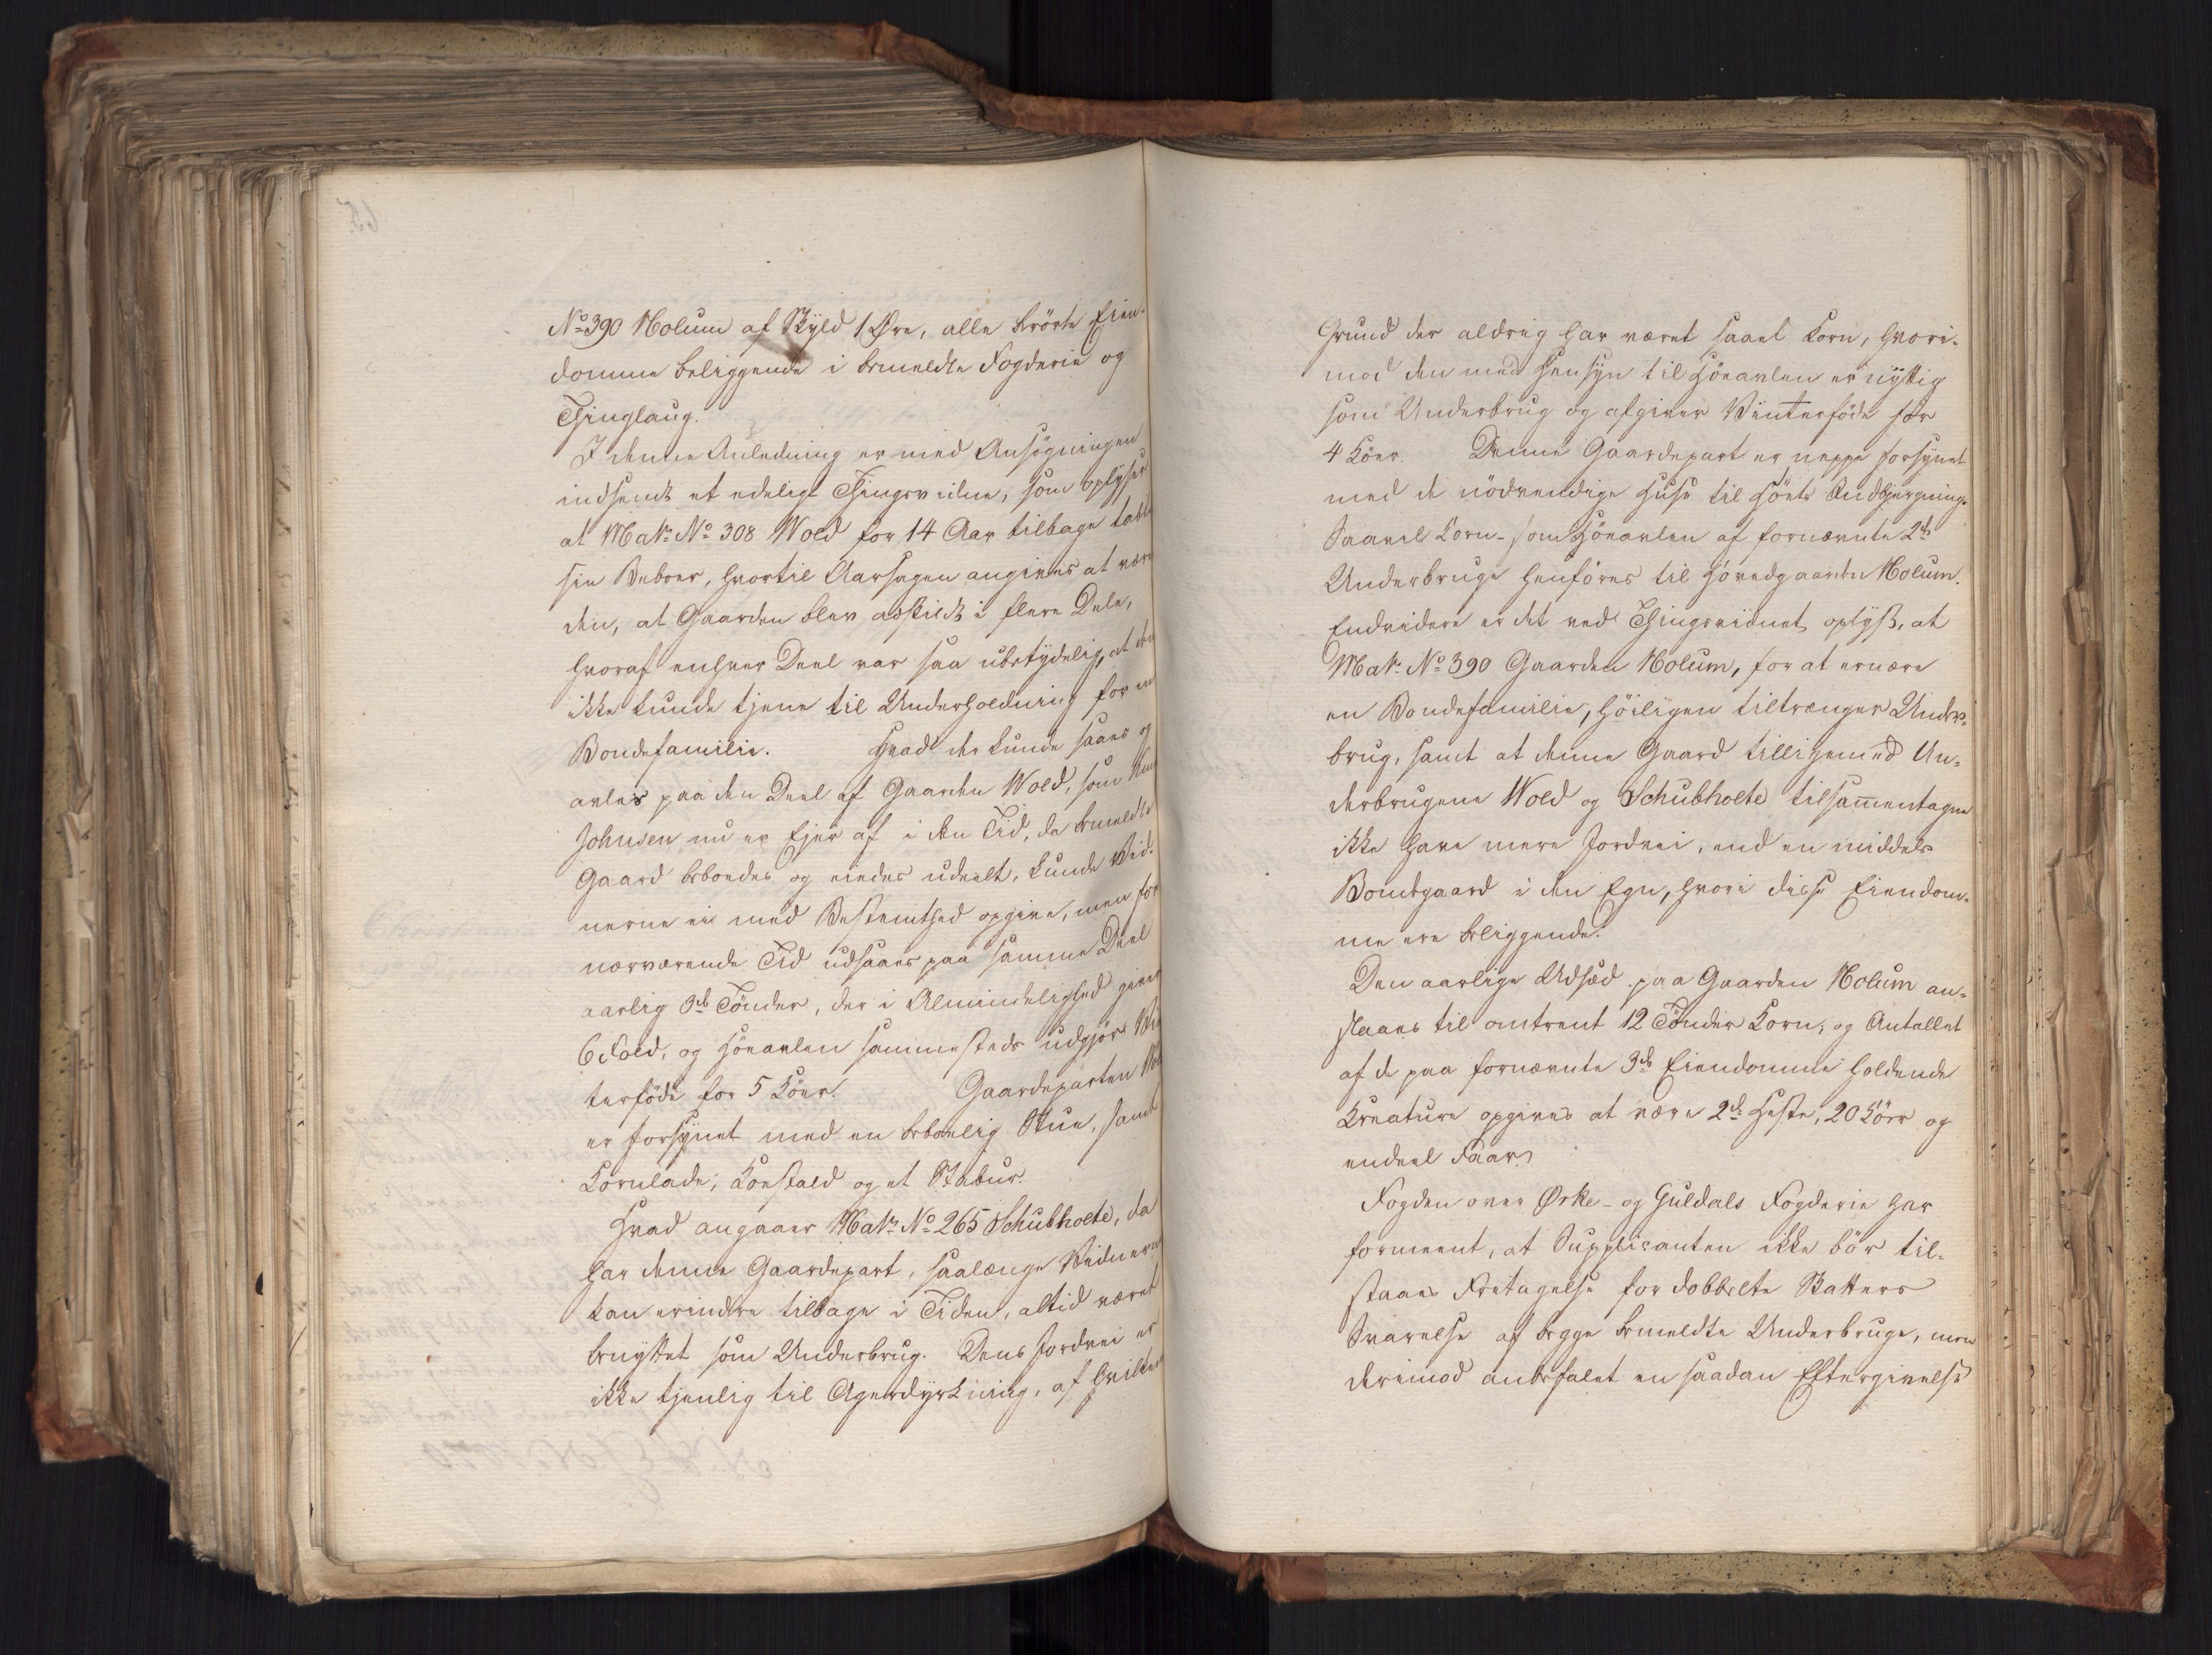 No 390 Holum af Skyld 1 Øre, alle brörte Eien-
domme beliggende i bemeldte Fogderie og
Thinglaug.
I denne Anledning er med Ansögningen
indsendt et edeligt Thingsvidne, som oplyser
at Matr: No 308 Wold for 14 Aar tilbage tabte
sin Beboer, hvortil Aarsagen angives at være
den, at Gaarden blev adskildt i flere Dele,
hvoraf enhver Deel var saa ubetydelig, at den
ikke kunde tjene til Underholdning for en
Bondefamilie. Hvad der kunde saaes og
avles paa den Deel af Gaarden Wold, som
Johnsen nu er Ejer af i den Tid, da bemeldte
Gaard beboedes og eiedes udeelt, kunde Vid-
nerne ei med Bestemthed opgive, men for
nærværende Tid udsaaes paa samme Deel
aarlig 3de Tönder, der i Almindelighed giver
6 Fold, og Höeavlen sammesteds udgjör Vin
terföde for 5 Köer. Gaardeparten Wold
er forsynet med en beboelig Stue, samt
Kornlade, Koestald og et Stabur.
Hvad angaaer Matr: No 265 Schubholte, da
har denne Gaardepart, saalænge Vidnerne
kan erindre tilbage i Tiden, altid været
benyttet som Underbrug. Dens Jordvei er
ikke tjenlig til Agerdyrkning, af hvilken
Grund der aldrig har været saaet Korn, hvori-
mod den med Hensyn til Höeavlen er nyttig
som Underbrug og afgiver Vinterföde for
4 Köer. Denne Gaardepart er neppe forsynet
med de nödvendige Huse til Höets Indbjergning.
Saavel Korn- som Höeavlen af fornævnte 2de
Underbruge henföres til Hovedgaarden Holum.
Endvidere er det ved Thingsvidnet oplyst, at
Matr: No 390 Gaarden Holum, for at ernære
en Bondefamilie, höiligen tiltrænger Under-
brug, samt at denne Gaard tilligemed Un-
derbrugene Wold og Schubholte tilsammentagne
ikke have mere Jordvei, end en middels
Bondegaard i den Egn, hvori disse Eiendom-
me ere beliggende.
Den aarlige Udsæd paa Gaarden Holum an-
slaaes til omtrent 12 Tönder Korn, og Antallet
af de paa fornævnte 3de Eiendomme holdende
Kreature opgives at være 2de Heste, 20 Köer og
endeel Faar.
Fogden over Orke- og Guldals Fogderie har
formeent, at Supplicanten ikke bör til-
staaes Fritagelse for dobbelte Skatters
Svarelse af begge bemeldte Underbruge, men
derimod anbefalet en saadan Eftergivelse